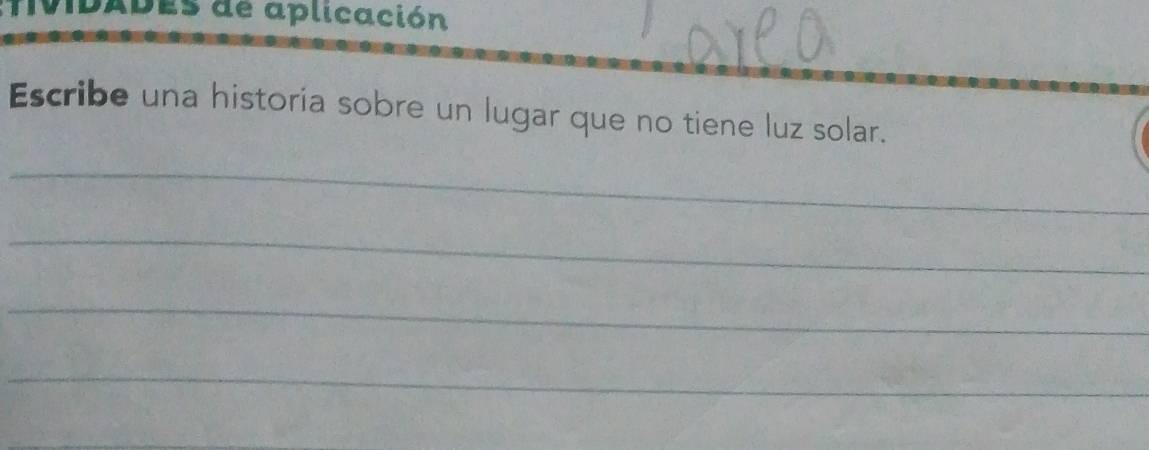 TIVIDADES de aplicación
Tarea
Escribe una historia sobre un lugar que no tiene luz solar.